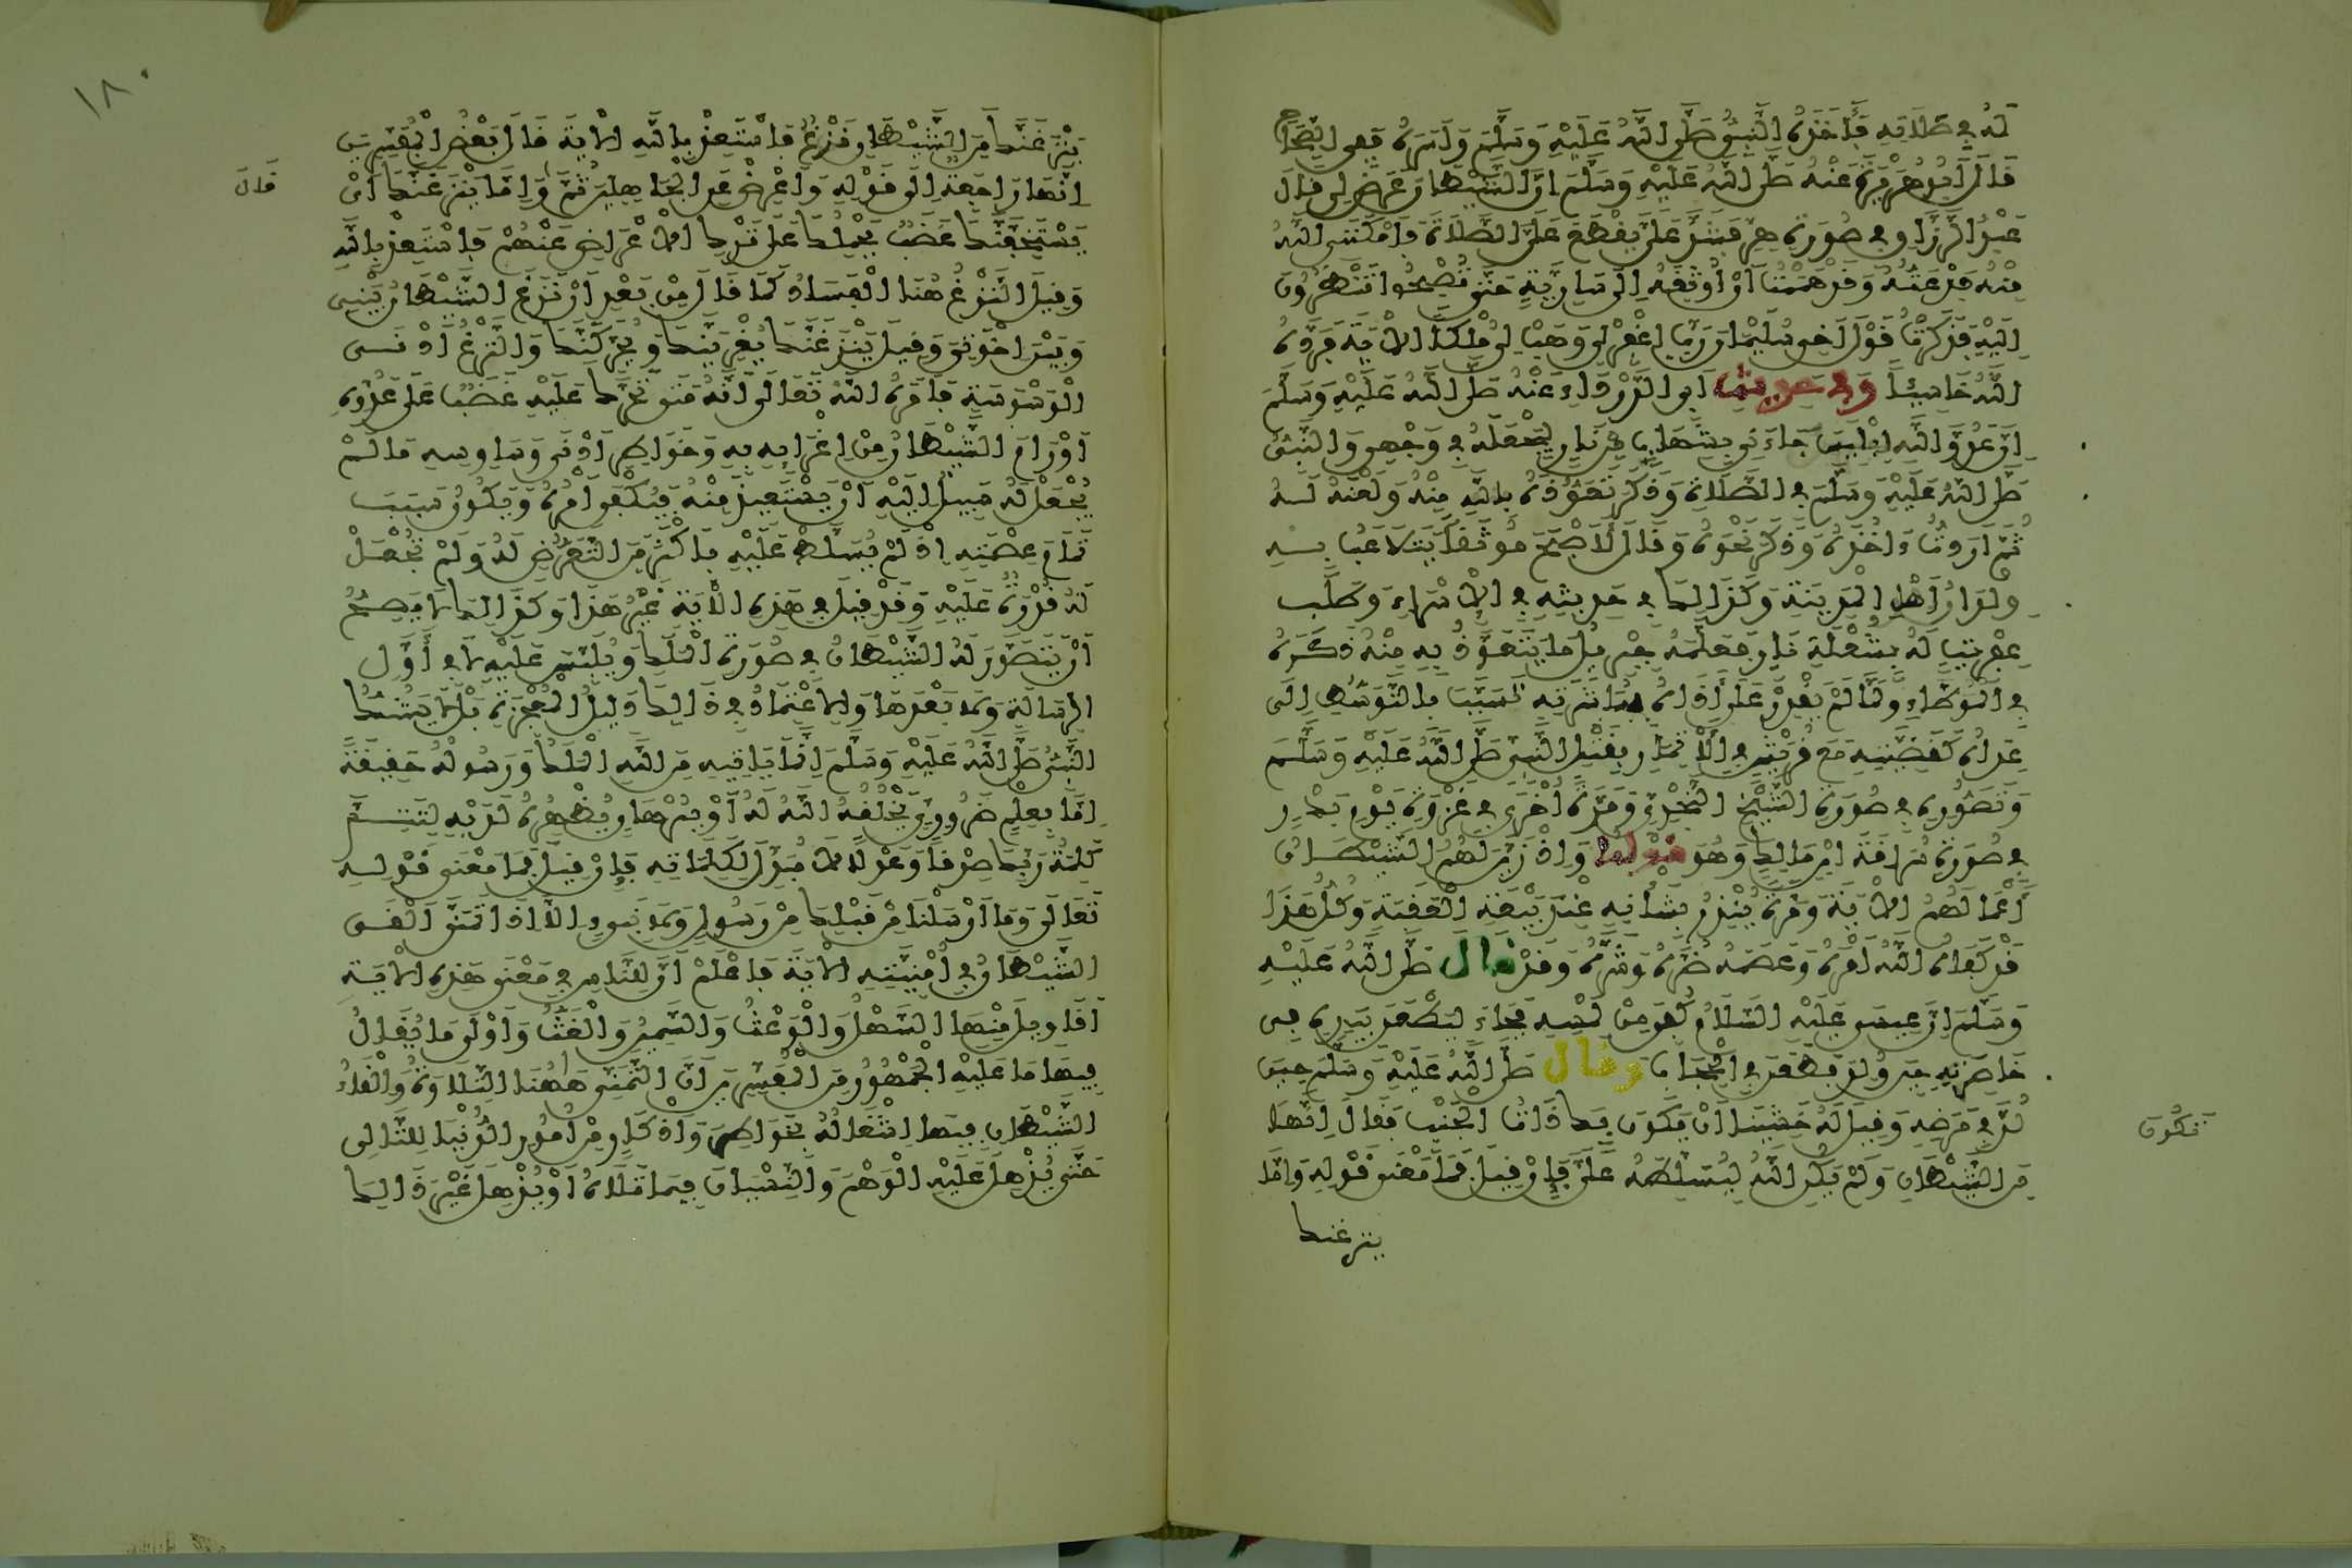 له في صلاته فأخذه النبي صلى الله عليه وسلم وأسره ففي الصحاح
قال أبو هريرة عنه صلى الله عليه وسلم إن الشيطان عرض لي قال
عبد الرزاق في صورة هر فشد علي يقطع علي الصلاة فأمكنني الله
منه فذعته وقد هممت أن أوثقه إلى سارية حتى تصبحوا تنظرون
إليه فذكرت قول أخي سليمان رب اغفر لي وهب لي ملكا الآية فرده
الله خاسئا وفي حديث أبي الدرداء عنه صلى الله عليه وسلم
إن عدو الله إبليس جاءني بشهاب من نار ليجعله في وجهي والنبي
صلى الله عليه وسلم في الصلاة وذكر تعوذه بالله منه ولعنه له
ثم أردت ءاخذه وذكر نحوه وقال لأصبح موثقا يتلاعب به
ولدان أهل المدينة وكذلك في حديثه في الإسراء وطلب
عفريت له بشعلة نار فعلمه جبريل ما يتعوذ به منه ذكره
في الموطإ ولما لم يقدر على أذاه بمباشرته تسبب بالتوسط إلى
عداه كقضيته مع قريش في الائتمار بقتل النبي صلى الله عليه وسلم
وتصوره في صورة الشيخ النجدي ومرة أخرى في غزوة يوم بدر
في صورة سراقة ابن مالك وهو قوله وإذ زين لهم الشيطان
أعمالهم الآية ومرة ينذر بشأنه عند بيعة العقبة وكل هذا
قد كفاه الله أمره وعصمه ضره وشره وقد قال صلى الله عليه
وسلم إن عيسى عليه السلام كفي من لمسه فجاء ليطعن بيده في
خاصرته حين ولد فطعن في الحجاب وقال صلى الله عليه وسلم حين
لد في مرضه وقيل له خشينا أن يكون بك ذات الجنب فقال إنها
تكون
من الشيطان ولم يكن الله ليسلطه علي فإن قيل فما معنى قوله وإما
ينزغنك
١٨٠
ينزغنك من الشيطان نزغ فاستعذ بالله الآية قال بعض المفسرين
قال
إنها راجعة إلى قوله وأعرض عن الجاهلين ثم وإما ينزغنك أي
يستخفنك غضب يحملك على ترك الإعراض عنهم فاستعذ بالله
وقيل النزغ هنا الفساد كما قال من بعد أن نزغ الشيطان بيني
وبين إخوتي وقيل ينزغنك يغرينك ويحركنك والنزغ أدنى
الوسوسة فأمره الله تعالى أنه متى تحرك عليه غضب على عدوه
أو رام الشيطان من إغرائه به وخواطر أدنى وساوسه ما لم
يجعل له سبيل إليه أن يستعيذ منه فيكفى أمره ويكون سبب
تمام عصمته إذ لم يسلط عليه بأكثر من التعرض له ولم تجعل
له قدرة عليه وقد قيل في هذه الآية غير هذا وكذلك لا يصح
أن يتصور له الشيطان في صورة الملك ويلبس عليه لا في أول
الرسالة ولا بعدها والاعتماد في ذلك دليل المعجزة بل لا يشك
النبي صلى الله عليه وسلم إنما يأتيه من الله الملك ورسوله حقيقة
إما بعلم ضروري يخلقه الله له أو ببرهان يظهره لديه لتتم
كلمة ربك صدقا وعدلا لا مبدل لكلماته فإن قيل فما معنى قوله
تعالى وما أرسلنا من قبلك من رسول ولا نبيء إلا إذا تمنى ألقى
الشيطان في أمنيته الآية فاعلم أن للناس في معنى هذه الآية
أقاويل منها السهل والوعث والسمين والغث وأولى ما يقال
فيها ما عليه الجمهور من المفسرين أن التمني ههنا التلاوة وإلقاء
الشيطان فيها إشغاله بخواطر وأذكار من أمور الدنيا للتالي
حتى يذهل عليه الوهم والنسيان فيما تلاه أو يذهل غير ذلك